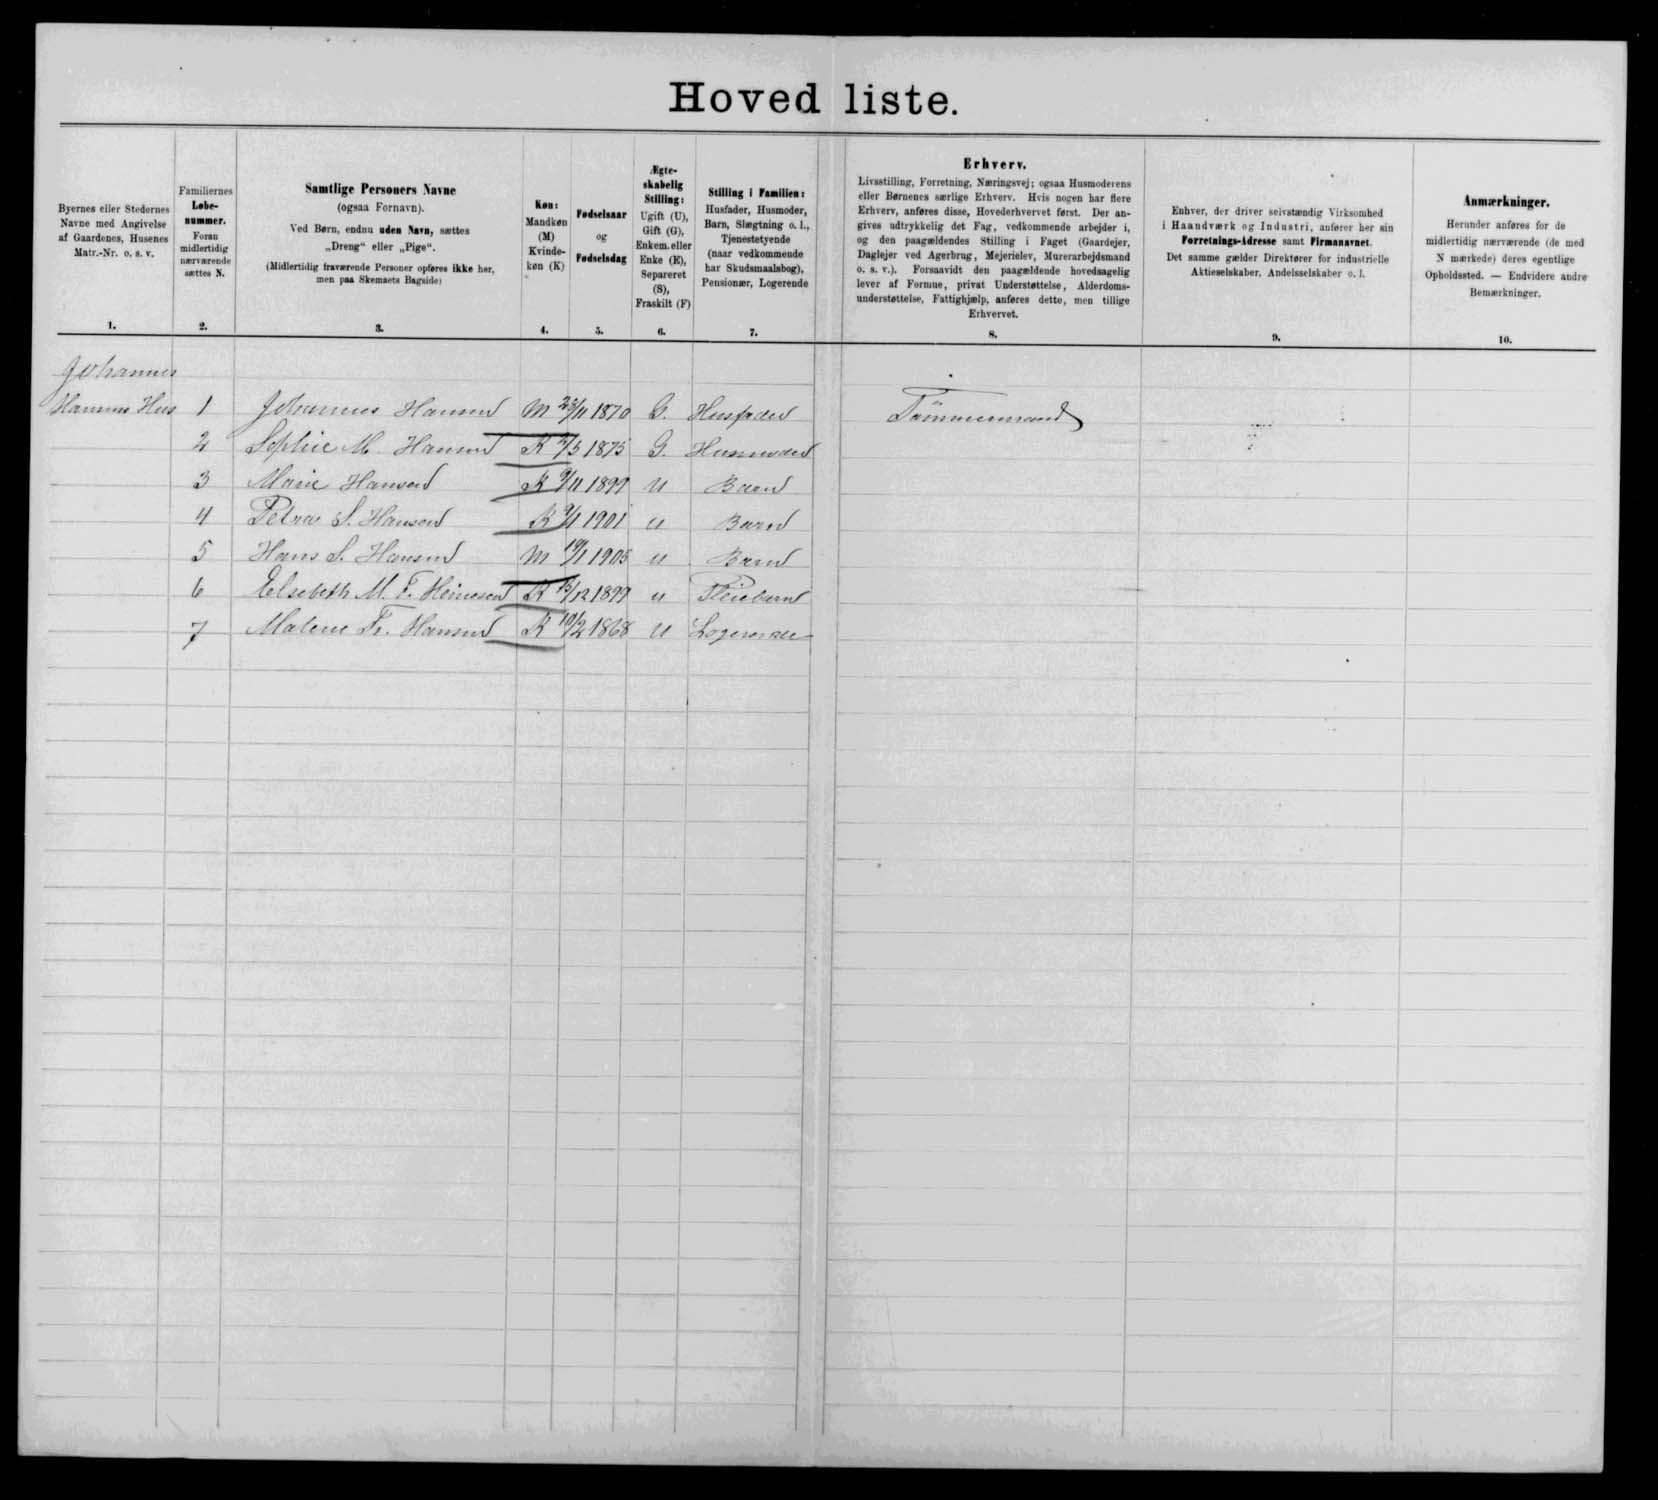 Hoved liste.
Byernes eller Stedernes
Navne med Angivelse
af Gaardenes, Husenes
Matr.-Nr. o. s. v.
1.
Familiernes
Løbe-
nummer.
Foran
midlertidig
nærværende
sættes N.
2.
Samtlige Personers Navne
(ogsaa Fornavn).
Ved Børn, endnu uden Navn, sættes
„Dreng“ eller „Pige“.
(Midlertidig fraværende Personer opføres ikke her,
men paa Skemaets Bagside)
3.
Køn:
Mandkøn
(M)
Kvinde-
køn (K)
4.
Fødselsaar
og
Fødselsdag
5.
Ægte-
skabelig
Stilling:
Ugift (U),
Gift (G),
Enkem. eller
Enke (E),
Separeret
(S),
Fraskilt (F)
6.
Stilling i Familien:
Husfader, Husmoder,
Barn, Slægtning o. l.,
Tjenestetyende
(naar vedkommende
har Skudsmaalsbog),
Pensionær, Logerende
7.
Erhverv.
Livsstilling, Forretning, Næringsvej; ogsaa Husmoderens
eller Børnenes særlige Erhverv. Hvis nogen har flere
Erhverv, anføres disse, Hovederhvervet først. Der an-
gives udtrykkelig det Fag, vedkommende arbejder i,
og den paagældendes Stilling i Faget (Gaardejer,
Daglejer ved Agerbrug, Mejerielev, Murerarbejdsmand
o. s. v.). Forsaavidt den paagældende hovedsagelig
lever af Formue, privat Understøttelse, Alderdoms-
understøttelse, Fattighjælp, anføres dette, men tillige
Erhvervet.
8.
Enhver, der driver selvstændig Virksomhed
i Haandværk og Industri, anfører her sin
Forretnings-Adresse samt Firmanavnet.
Det samme gælder Direktører for industrielle
Aktieselskaber, Andelsselskaber o. l.
9.
Anmærkninger.
Herunder anføres for de
midlertidig nærværende (de med
N mærkede) deres egentlige
Opholdssted. — Endvidere andre
Bemærkninger.
10.
Johannes
Hansens Hus 1 Johannes Hansen M 23/11 1870 G. Husfader Tømmermand
2 Sophie M. Hansen K /5 1875 G. Husmoder
3 Marie Hansen K 9/11 1899 U Barn
4 Petra S. Hansen K 9/1 1901 U Barn
5 Hans S. Hansen M 19/1 1905 U Barn
6 Elsebeth M. F. Heinesen K /12 1899 U Pleiebarn
7 Malene Fr. Hansen K 10/2 1868 U Logerende